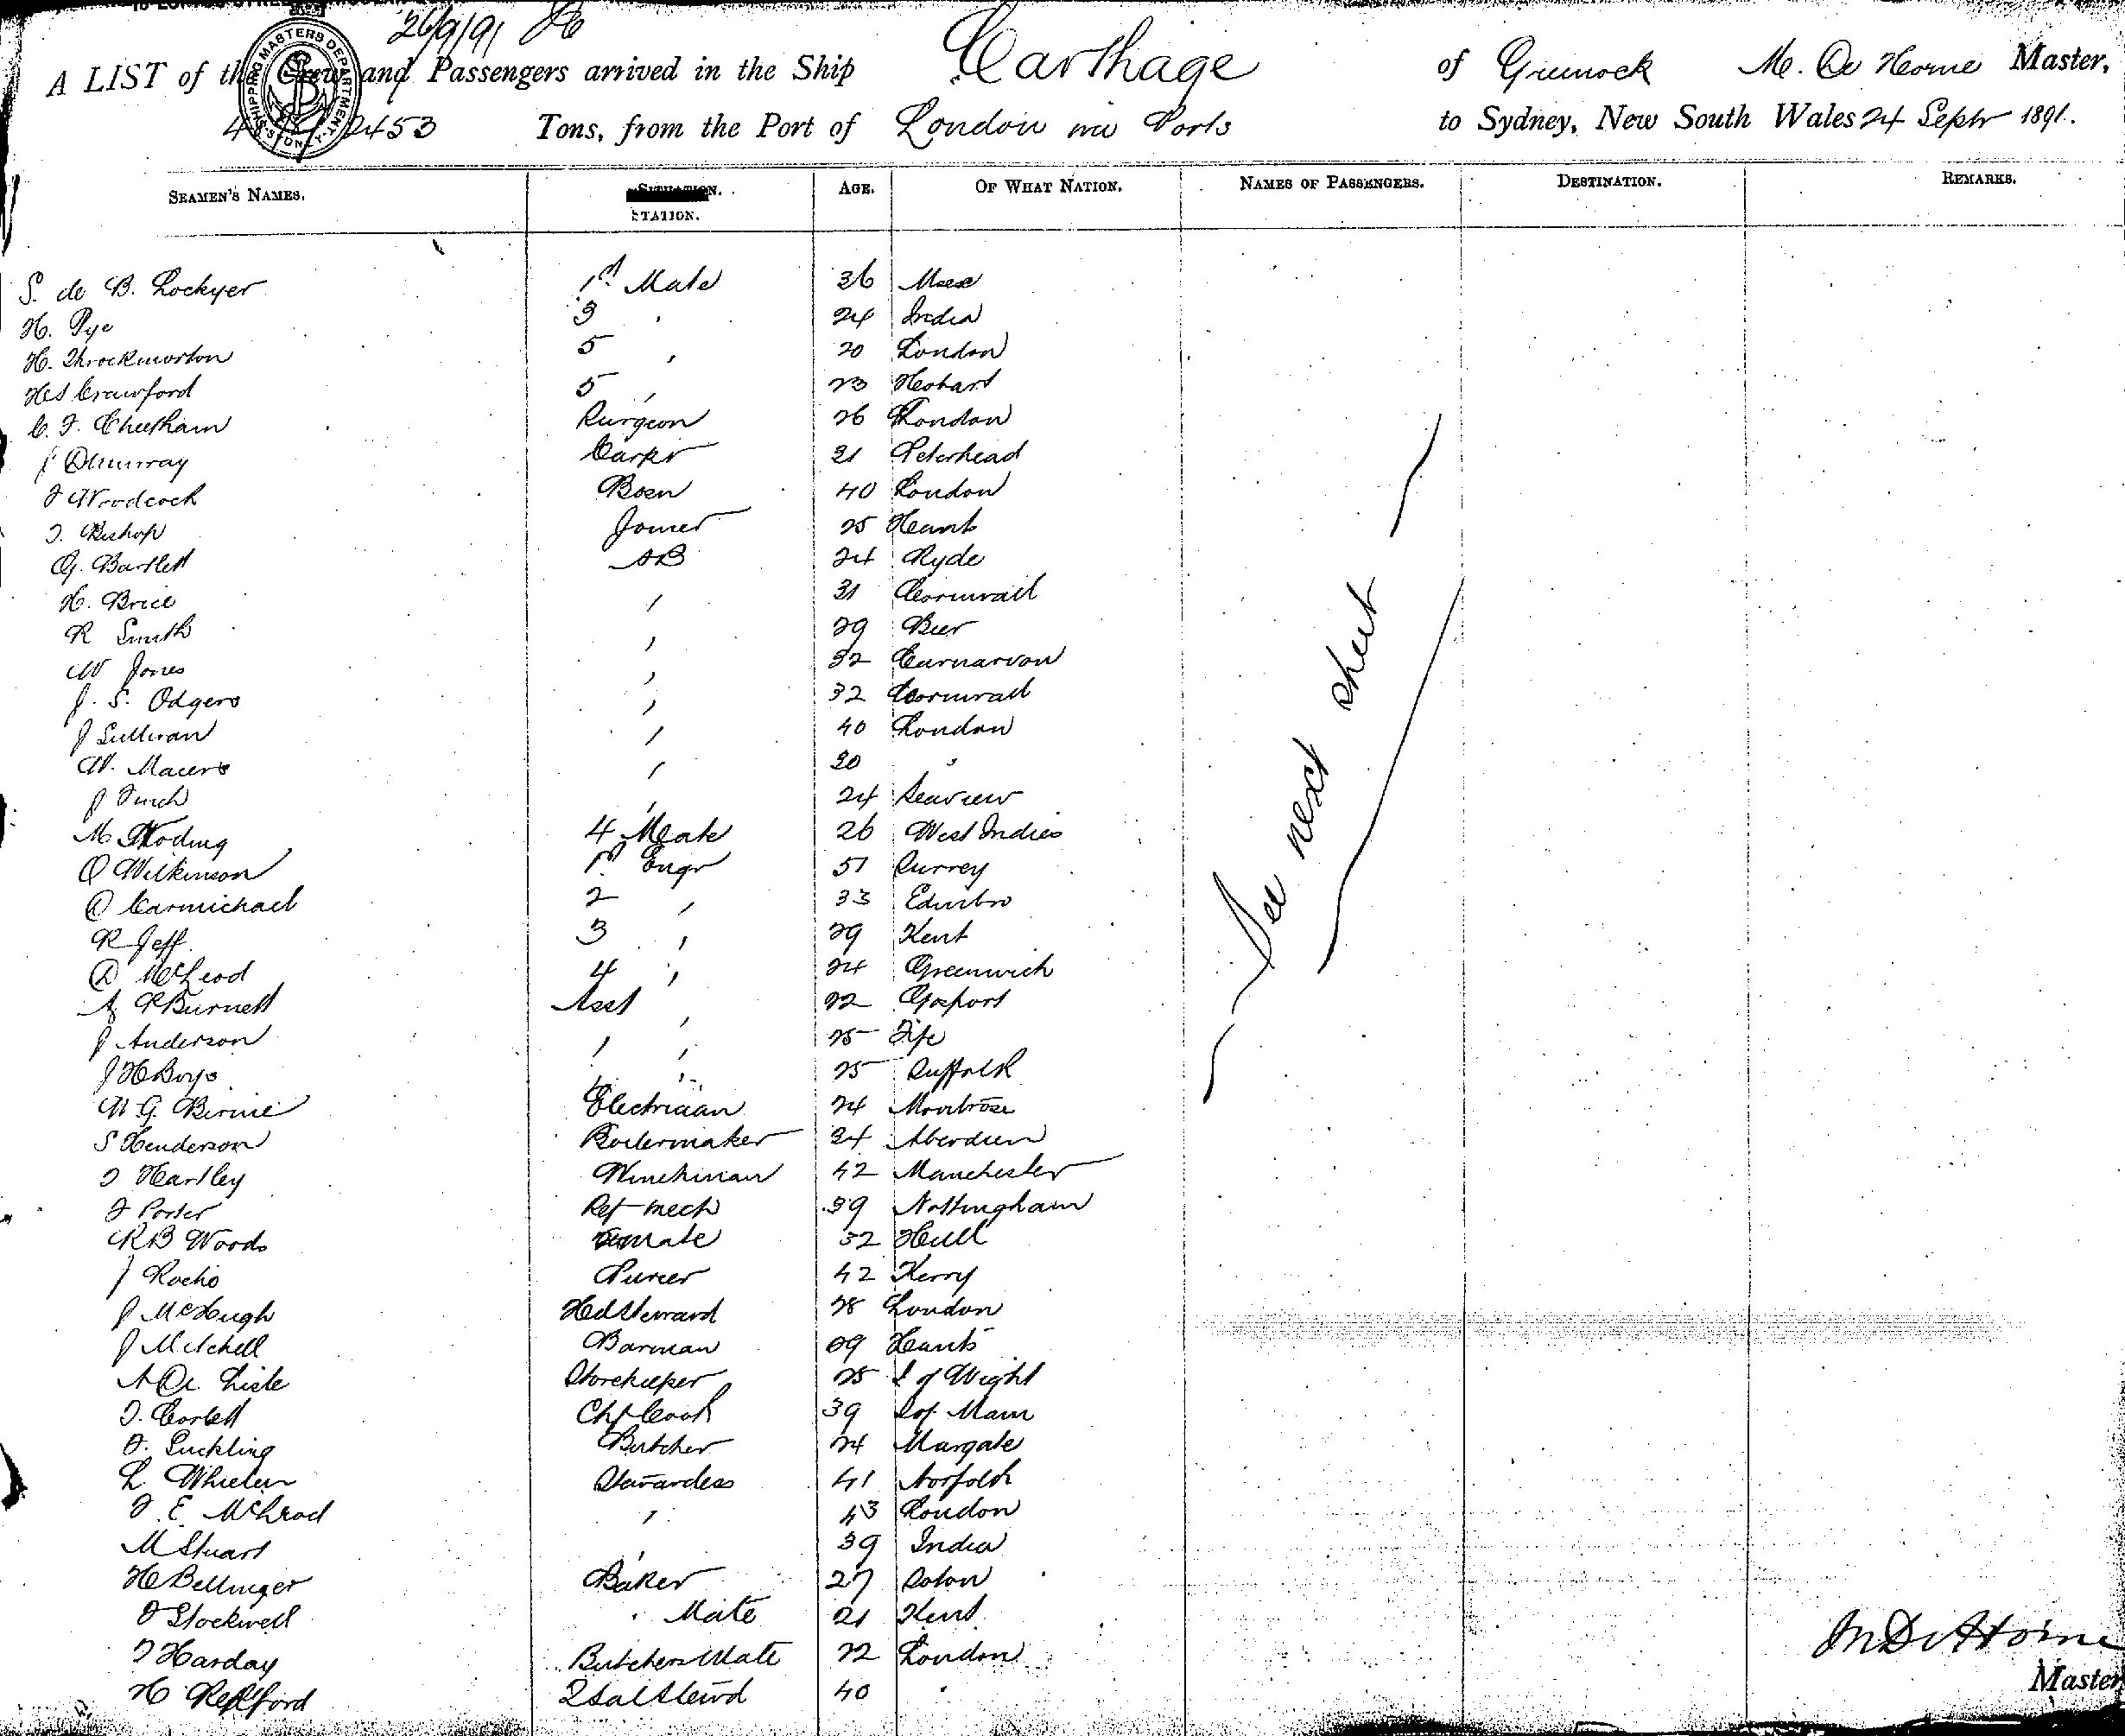 26/9/91
A LIST of the Crew and Passengers arrived in the Ship Carthage of Greenock M. De Horne Master,
SHIPPING MASTERS DEPARTMENT SYDNEY
2453 Tons, from the Port of London via Ports to Sydney, New South Wales 24 Septr 1891.
SEAMEN'S NAMES. STATION. AGE. OF WHAT NATION. NAMES OF PASSENGERS. DESTINATION. REMARKS.
S. de B. Lockyer 1st Mate 36
H. Pye 3 " 24 India
H. Throckmorton 5 " 20 London
Crawford 5 " 23 Hobart
C. F. Cheetham Surgeon 26 London
J Murray Carpr 31 Peterhead
J Woodcock Bosn 40 London
J. Bishop Joiner 25 Hants
G. Bartlett AB 24 Ryde
H. Brice " 31 Cornwall
R Smith " 29 Beer
W Jones " 32 Carnarvon
J. S. Odgers " 32 Cornwall
J Sullivan " 40 London
W. Macers " 30 "
J Finch " 24 Seaview
M Hoding 4 Mate 26 West Indies
O Wilkinson 1st Engr 51 Surrey
A Carmichael 2 " 33 Edinbro
R Jeff 3 " 29 Kent
A McLeod 4 " 24 Greenwich
A. R Burnett Asst " 22 Gosport
J Anderson " " 25 Fife
J H Boys " " 25 Suffolk
W. G. Birnie Electrician 24 Montrose
S Henderson Boilermaker 24 Aberdeen
J Hartley Winchman 42 Manchester
J Porter Ref mech 39 Nottingham
R B Woods mate 32 Hull
J Roche Purser 42 Kerry
J McHugh Hd Steward 28 London
J Mitchell Barman 29 Hants
A De Lisle Storekeeper 25 I of Wight
J. Corbett Chf Cook 39 I of Man
F. Suckling Butcher 24 Margate
L Wheeler Stewardess 41 Norfolk
F. E. McLeod " 43 London
M Stuart " 39 India
H Bellinger Baker 27 Soton
F Stockwell " Mate 21 Kent
J Harday Butchers Mate 22 London
H Redford 2 Sal Stewd 40 "
See next sheet
M De Horne
Master